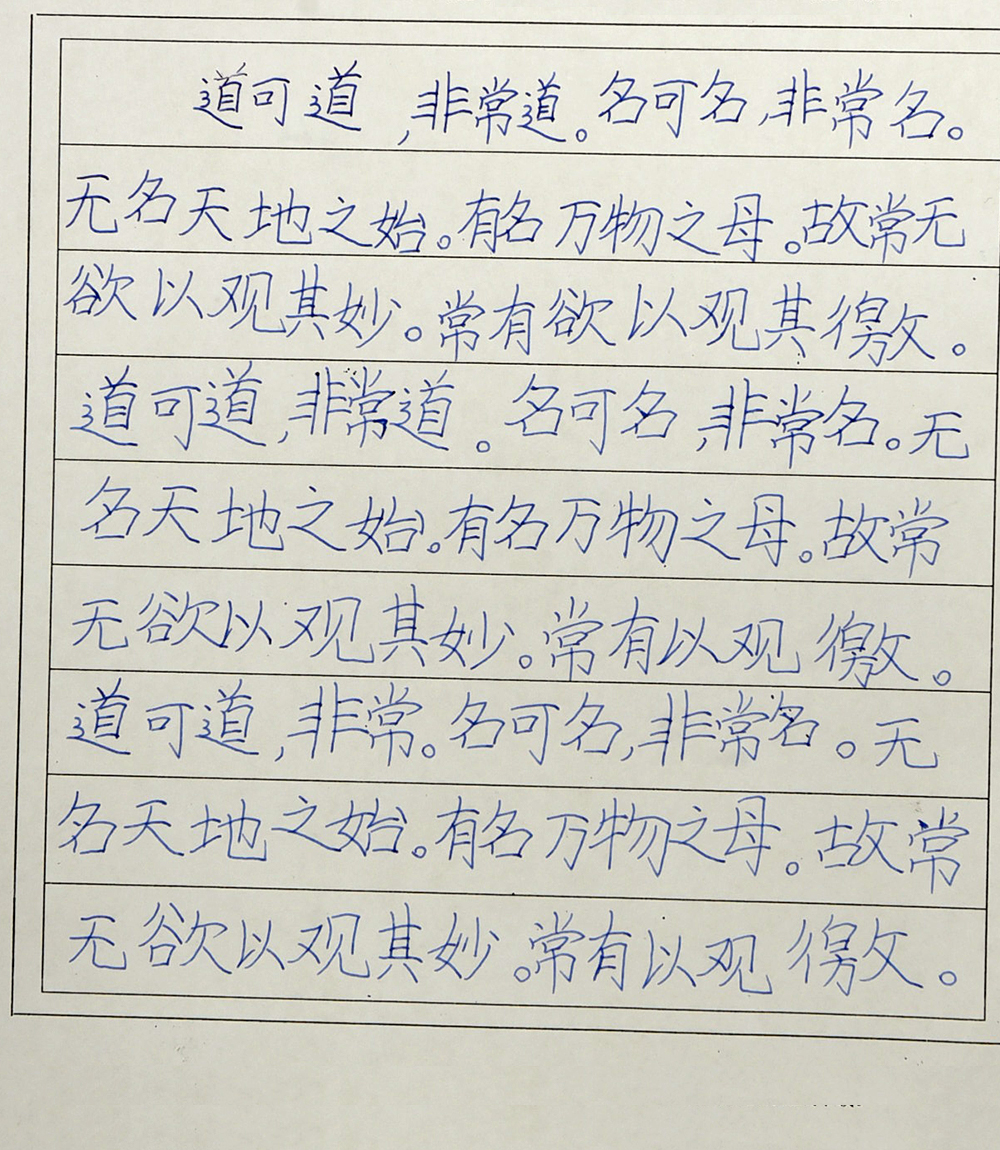 道可道,非常道。名可名,非常名。
无名天地之始。有名万物之母。故常无
欲以观其妙。常有欲以观其徼。
道可道,非常道。名可名,非常名。无
名天地之始。有名万物之母。故常
无欲以观其妙。常有以观徼。
道可道,非常。名可名,非常名。无
名天地之始。有名万物之母。故常
无欲以观其妙。常有以观徼。